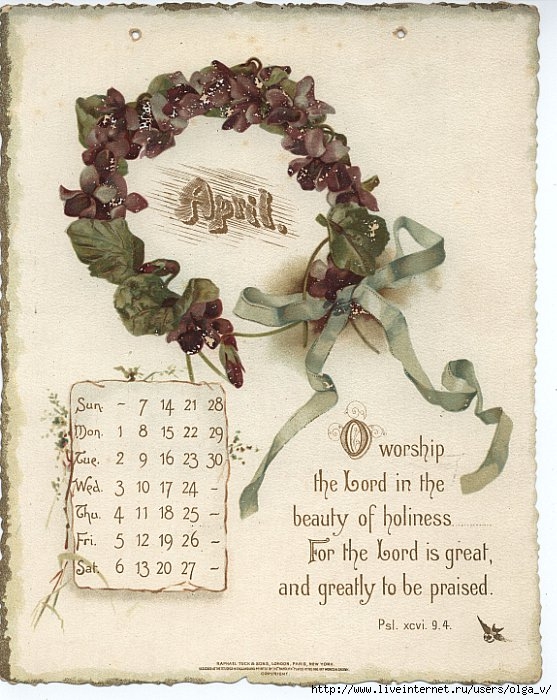 April.
Sun. – 7 14 21 28
Mon. 1 8 15 22 29
Tue. 2 9 16 23 30
Wed. 3 10 17 24 –
Thu. 4 11 18 25 –
Fri. 5 12 19 26 –
Sat. 6 13 20 27 –
O worship
the Lord in the
beauty of holiness
For the Lord is great,
and greatly to be praised.
Psl. xcvi. 9. 4.
RAPHAEL TUCK & SONS, LONDON, PARIS, NEW YORK.
COPYRIGHT
http://www.liveinternet.ru/users/olga_v/